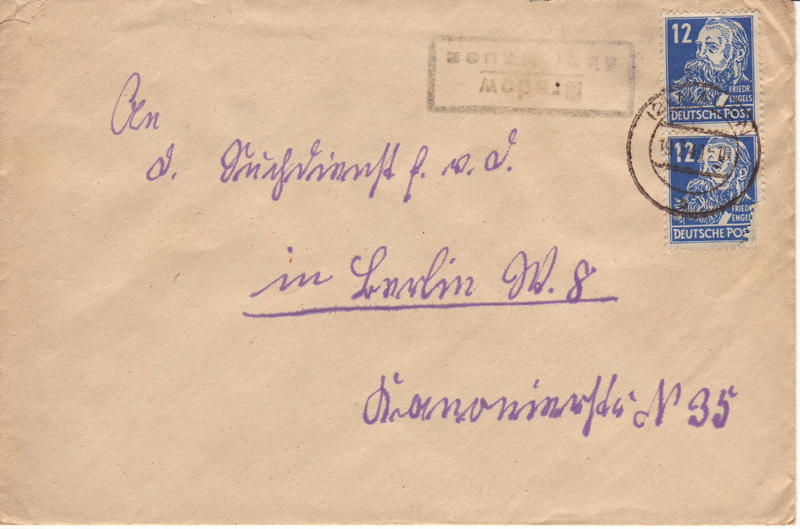 An
d. Suchdienst f. v. d.
in Berlin W. 8
Kanonierstr N 35
12
FRIEDR.
ENGELS
DEUTSCHE POST
12
FRIEDR
ENGELS
DEUTSCHE POST